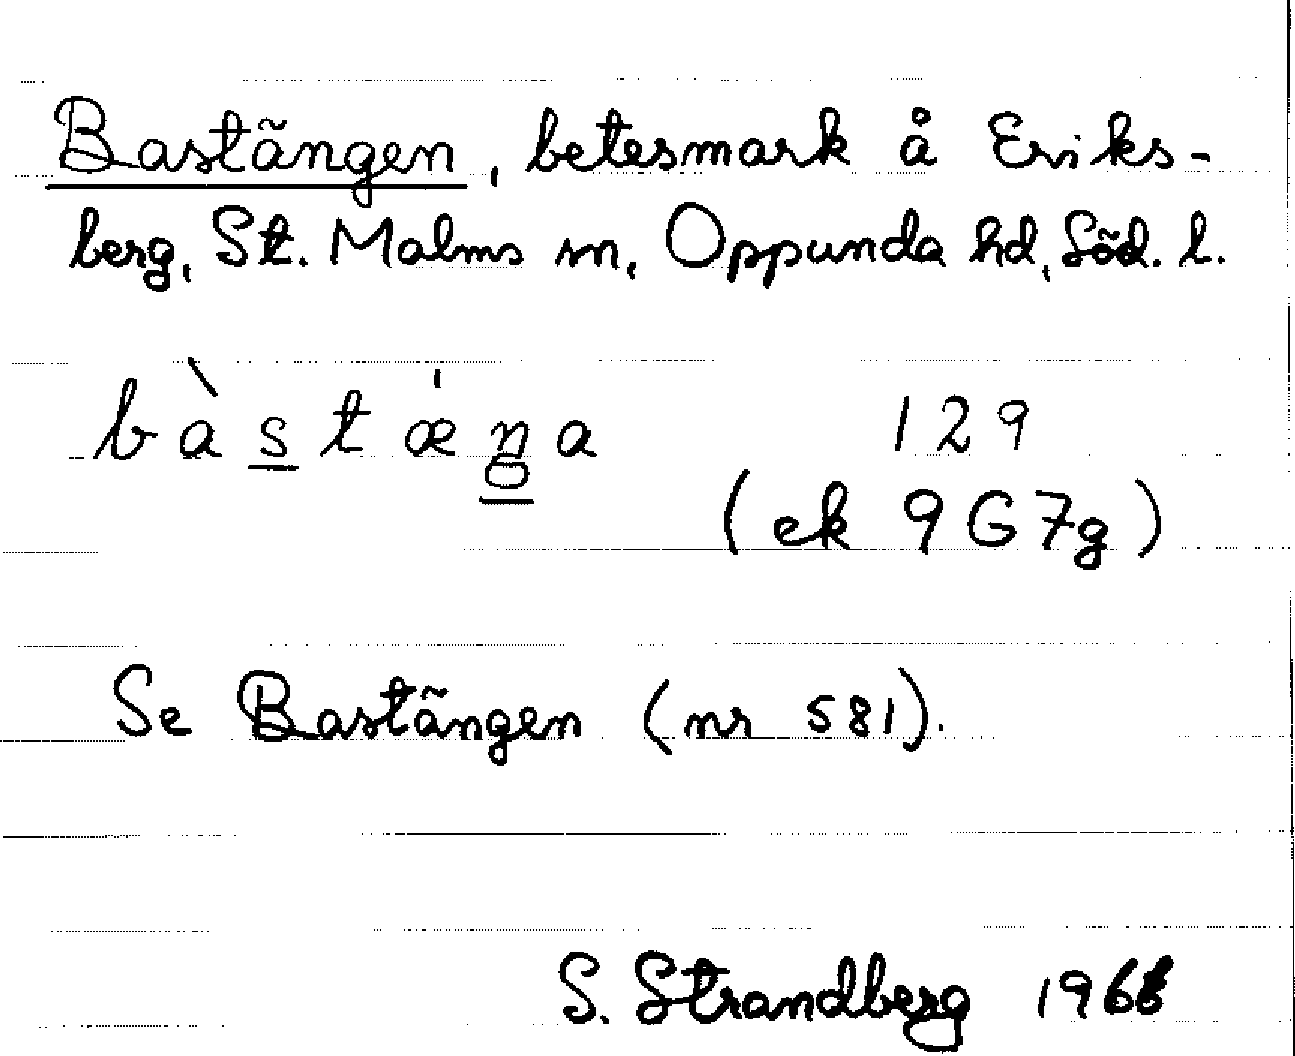 Bastängen, betesmark å Eriks-
berg, St. Malms sn, Oppunda hd, Söd. l.
bàstæ̍ŋa 129
(ek 9G7g)
Se Bastängen (nr 581).
S. Strandberg 1966